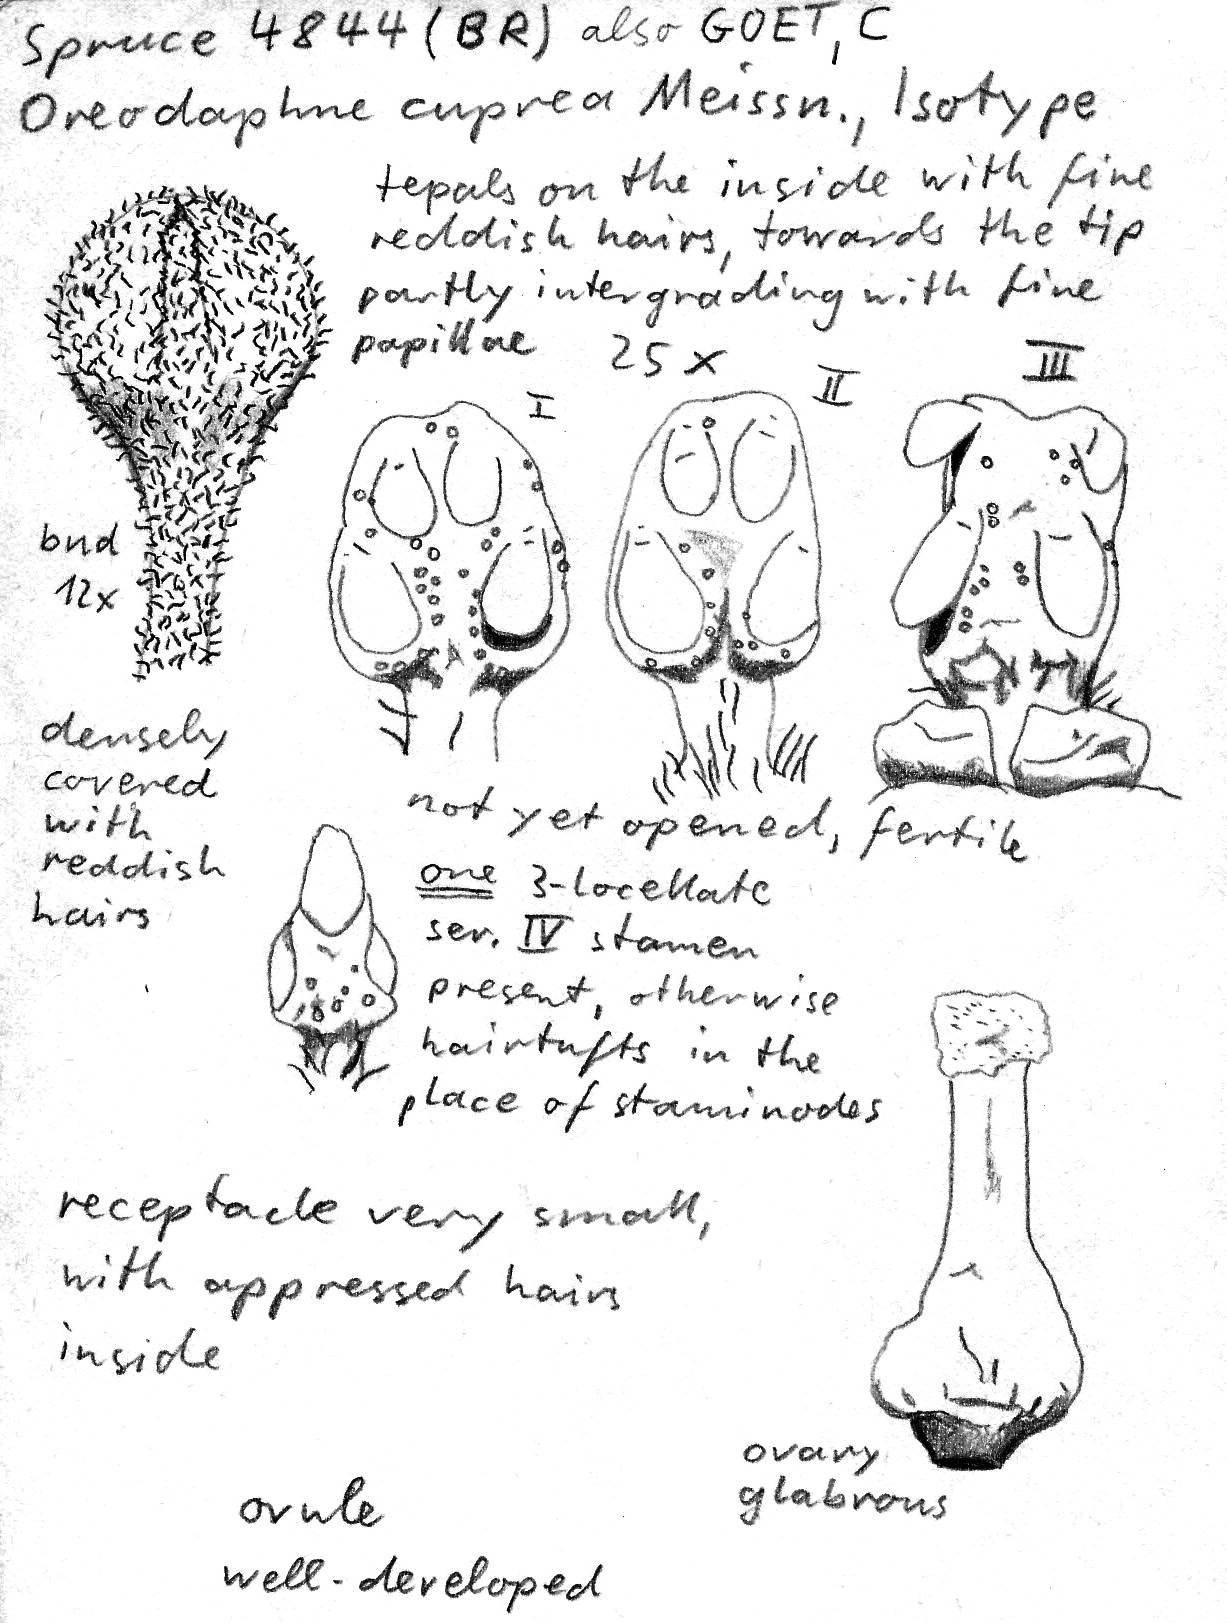 Spruce 4844 (BR) also GOET, C
Oreodaphne cuprea Meissn., Isotype
tepals on the inside with fine
reddish hairs, towards the tip
partly intergrading with fine
papillae
25 x
I
II
III
bud
12x
densely
covered
with
reddish
hairs
not yet opened, fertile
one 3-locellate
ser. IV stamen
present, otherwise
hairtufts in the
place of staminodes
receptacle very small,
with appressed hairs
inside
ovary
glabrous
ovule
well-developed